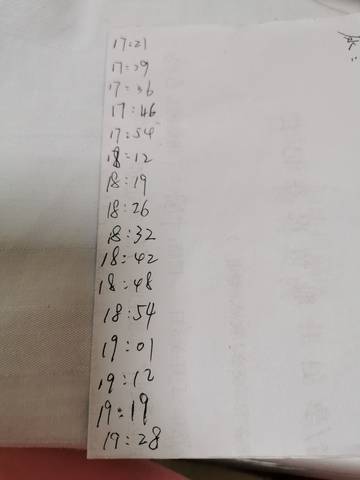 17:21
17:29
17:36
17:46
17:54
18:12
18:19
18:26
18:32
18:42
18:48
18:54
19:01
19:12
19:19
19:28